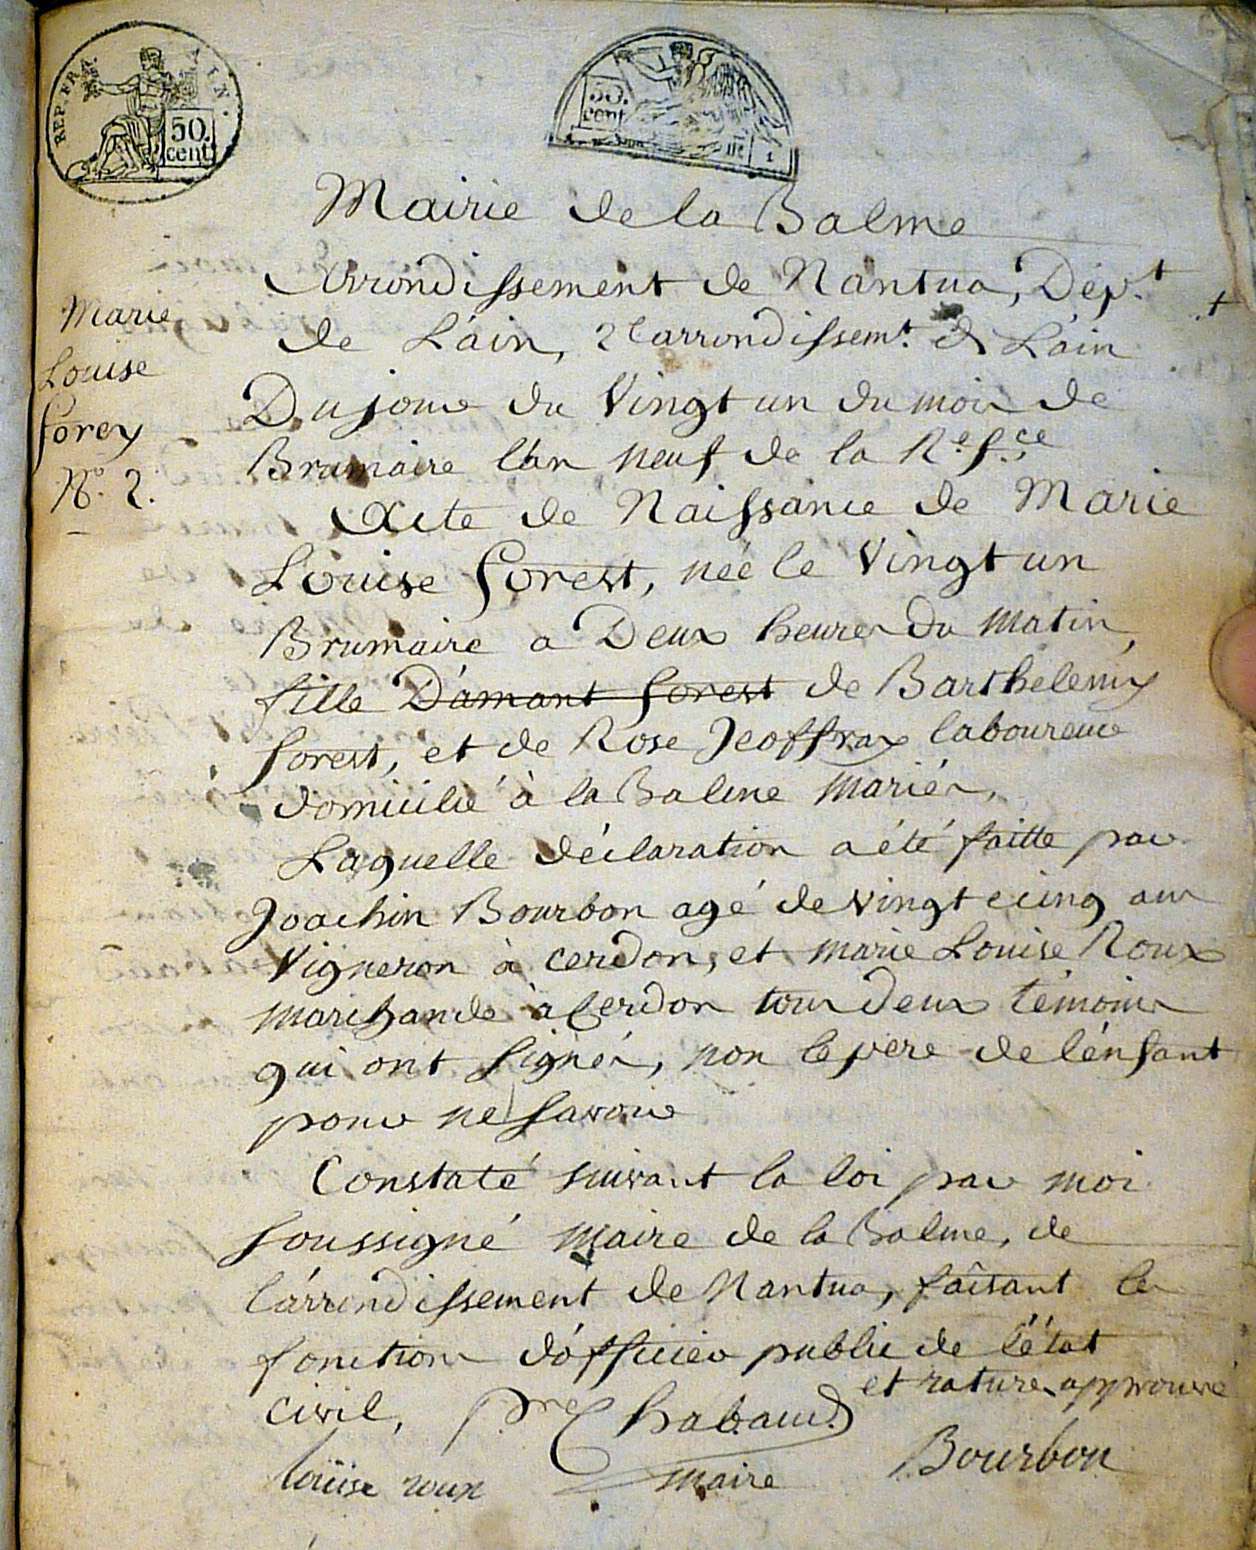 REP. FRA. AIN.
50.
cent.
cent.
Mairie de la Balme
Arrondissement de Nantua, Dép.t
de L'ain, 2e arrondissem.t de L'ain
Marie
Louise
forey
N°. 2.
Du jour du Vingt un du mois de
Brumaire l'an neuf de la R.e f.ce
Acte de Naissance de Marie
Louise forest, née le Vingt un
Brumaire a Deux heures du matin,
fille D'amant forest de Barthelemy
forest, et de Rose Jeoffray laboureur
domicilié à la Balme mariés,
Laquelle déclaration a été faitte par
Joachin Bourbon agé de vingt cinq ans
Vigneron à cerdon, et marie Louise Roux
marchande à Cerdon tous deux témoins
qui ont signés, non le pere de l'énfant
pour ne savoir
Constaté suivant la loi par moi
soussigné maire de la Balme, de
l'arrondissement de Nantua, faisant les
fonctions d'officier public de l'état
et rature approuvé
civil, P.re Chabaud
Louise roux maire Bourbon